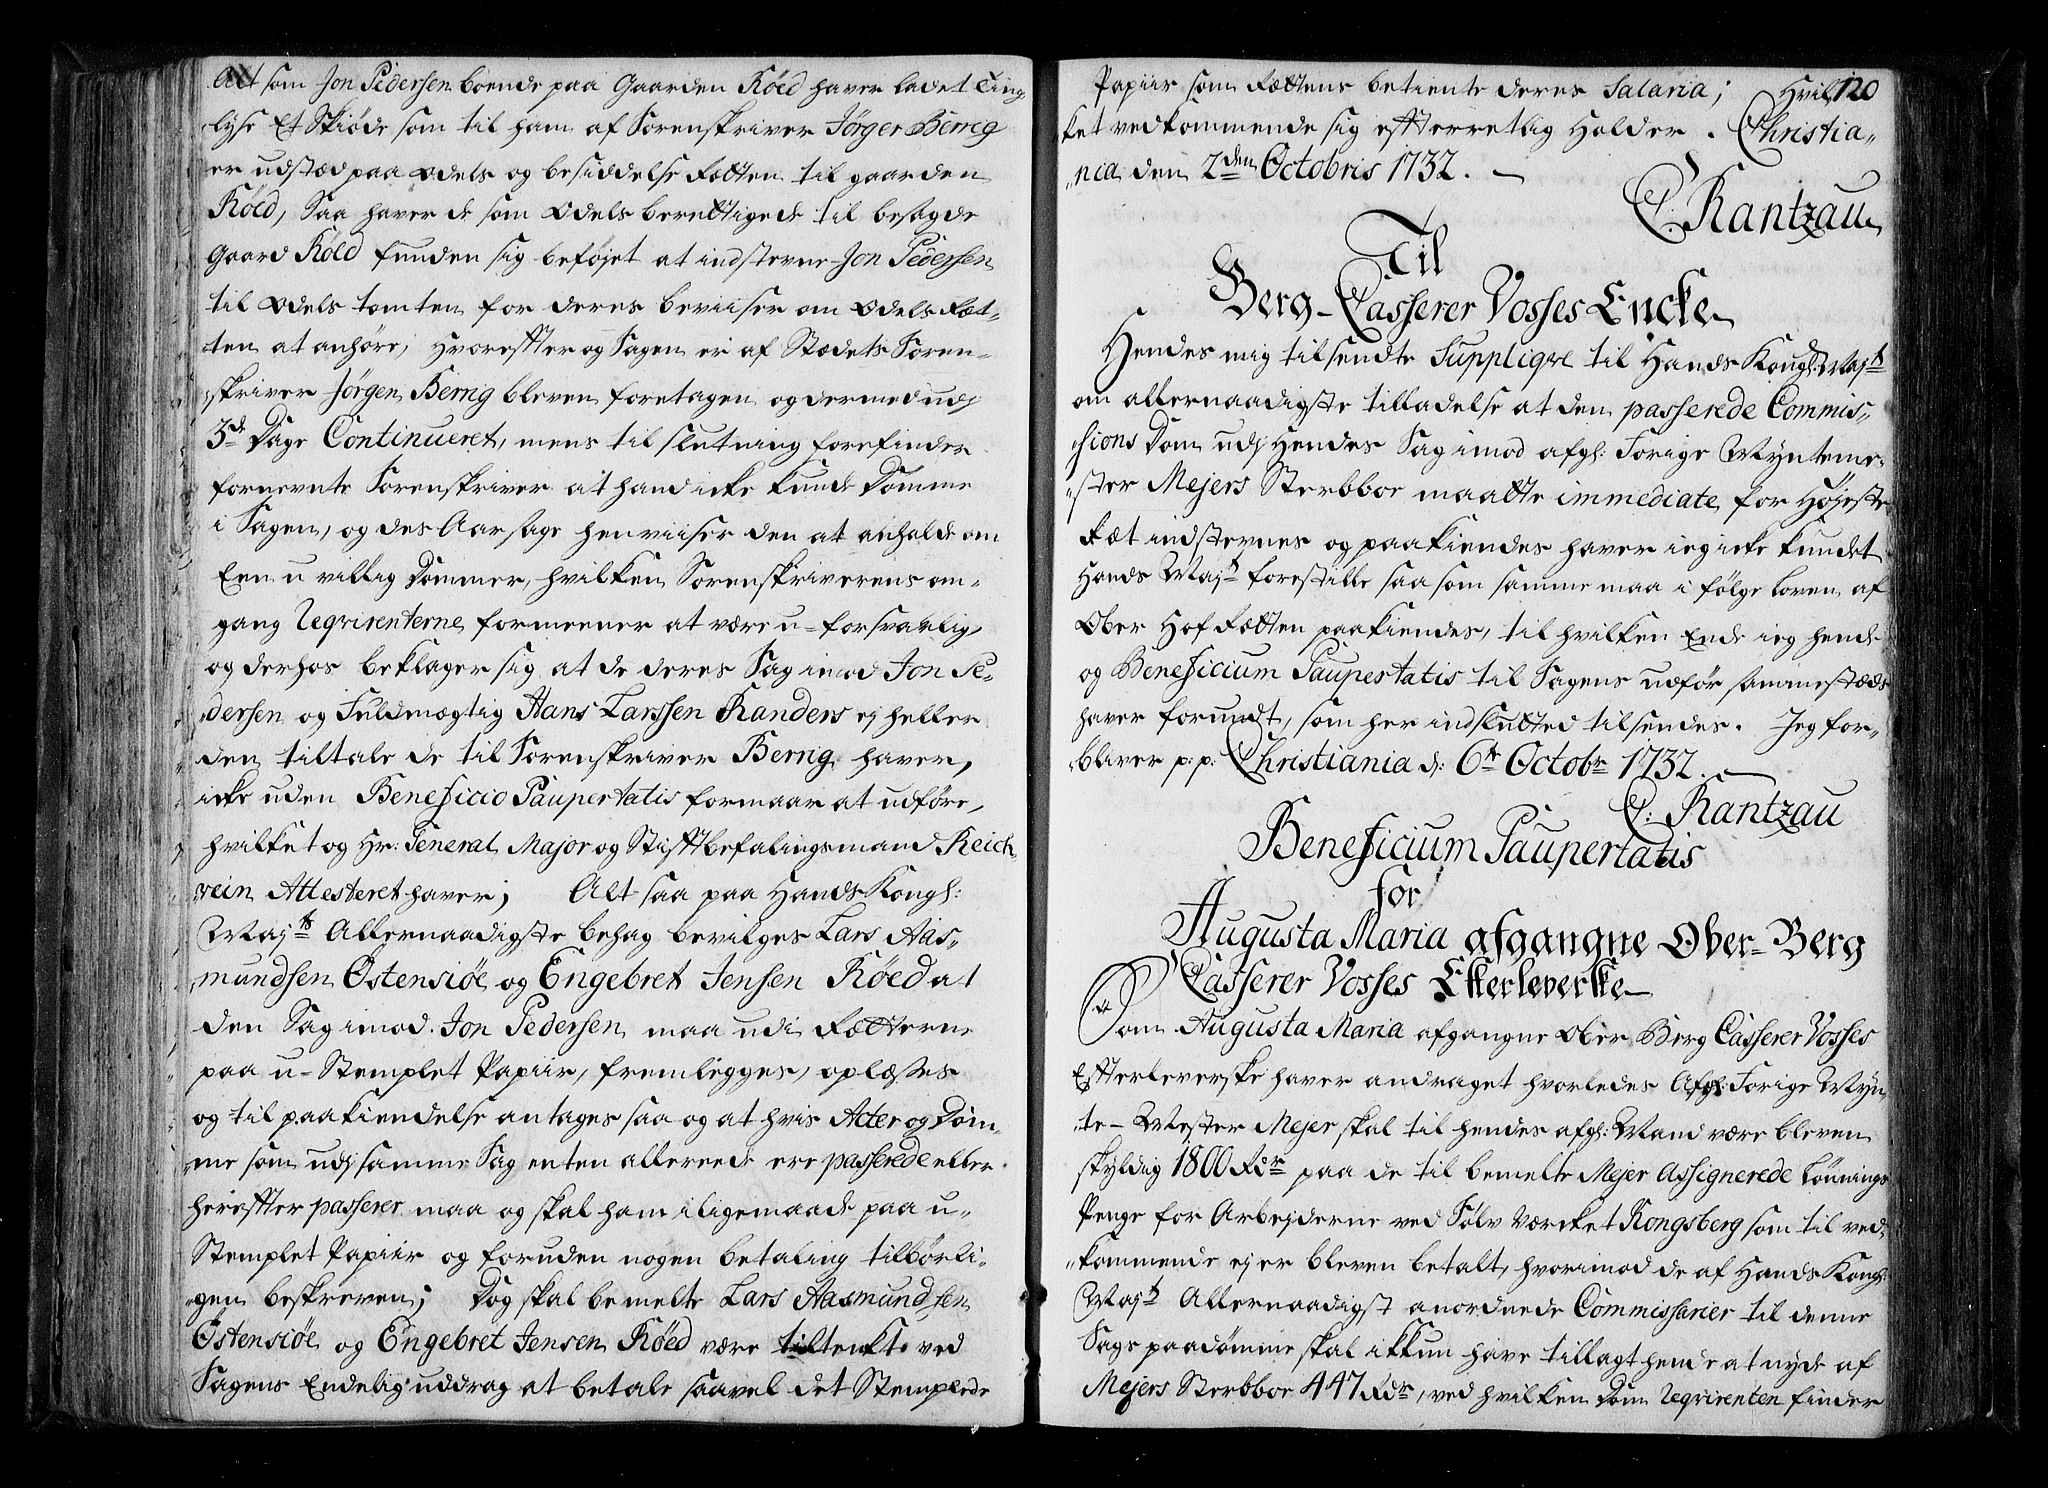 Alt som Jon Pedersen boende paa Gaarden Röed haver ladet Ting,,
lyse Et Skiöde som til ham af Sorenskriver Jörger Berrig
er udstæd paa odels og besiddelse Retten til gaarden
Röed, Saa haver de som odels berettigede til besagde
gaard Röed funden sig beföjet at indstevne Jon Pedersen
til odels tomten for deres beviiser om odels Ræt,,
ten at anhöre, Hvoreffter og Sagen er af Stædets Soren,,
skriver Jörgen Berrig bleven foretagen og dermed udj
3de Dage Continueret, mens til slutning forefinder
fornevnte Sorenskriver at hand icke kunde Domme
i Sagen, og des Aarsage henviiser den at anholde om
Een u villig Dommer, hvilken Sorenskriverens om,,
gang Reqvirenterne formeener at være u-forsvarlig,
og derhos beklager sig at de deres Sag imod Jon Pe,,
dersen og Fuldmægtig Hans Larssen Randers ej heller
den tiltale de til Sorenskriver Berrig haver,
icke uden Beneficio Paupertatis formaar at udföre,
hvilket og Hr: General Major og Stifftbefalingsmand Reich,,
vein Attesteret haver; Alt saa paa Hands Kongl:
Mayts Allernaadigste behag bevilges Lars Aas,,
mundsen Ostensiöe og Engebret Jensen Röed at
den Sag imod Jon Pedersen maa udi Rætterne
paa u-Stemplet Papiir, fremlegges, oplæsses
og til paakiendelse antages saa og at hvis Acter og Dom,,
me som udj samme Sag enten allereede ere passerede eller
hereffter passerer maa og skal ham iligemaade paa u,,
Stemplet Papiir og foruden nogen betaling tilbörli,,
gen beskreven; Dog skal bemelte Lars Aasmundsen
Ostensiöe og Engebret Jensen Röed være tiltenkt ved
Sagens Endelig uddrag at betale saavel det Stemplede
Papiir som Rættens betiente deres Salaria; Hvil,, 120
ket vedkommende sig effterretlig Holder. Christia,,
nia den 2den Octobris 1732.
C. Rantzau
Til
Berg-Casserer Vosses Encke
Hendes mig tilsendte Suppliqve til Hands Kongl: Mayt
om allernaadigste tilladelse at den passerede Commis,,
sions Dom udj Hendes Sag imod afgl: Forige Myntme,,
ster Mejers Sterbboe maatte immediate for Höjeste
Ræt indstevnes og paakiendes haver ieg icke kundet
Hands Mayt forestille saasom samme maa i fölge loven af
Ober Hof Rætten paakiendes, til hvilken Ende ieg hende
og Beneficium Paupertatis til Sagens udför sammestæds
haver forundt, som her indslutted tilsendes. Jeg for,,
bliver p.p. Christiania d: 6te Octobr 1732.
C: Rantzau
Beneficium Paupertatis
for
Augusta Maria afgangne Ober-Berg
Casserer Vosses Efterleverske
Som Augusta Maria afgangne Ober Berg Casserer Vosses
Effterleverske haver andraget hvorledes Afgl: Forige Myn,,
te-Mester Mejer skal til hendes afgl: Mand være bleven
skyldig 1800 Rdr paa de til bemelte Mejer Assignerede lönnings
Penge for Arbejderne ved Sölv Værcket Kongsberg som til ved,,
kommende ej er bleven betalt, hvorimod de af Hands Kongl:
Mayt Allernaadigst anordnede Commissarier til denne
Sags paadömme skal ikkun have tillagt hende at nyde af
Mejers Sterbboe 447 Rdr, ved hvilken Dom Reqvirenten finder